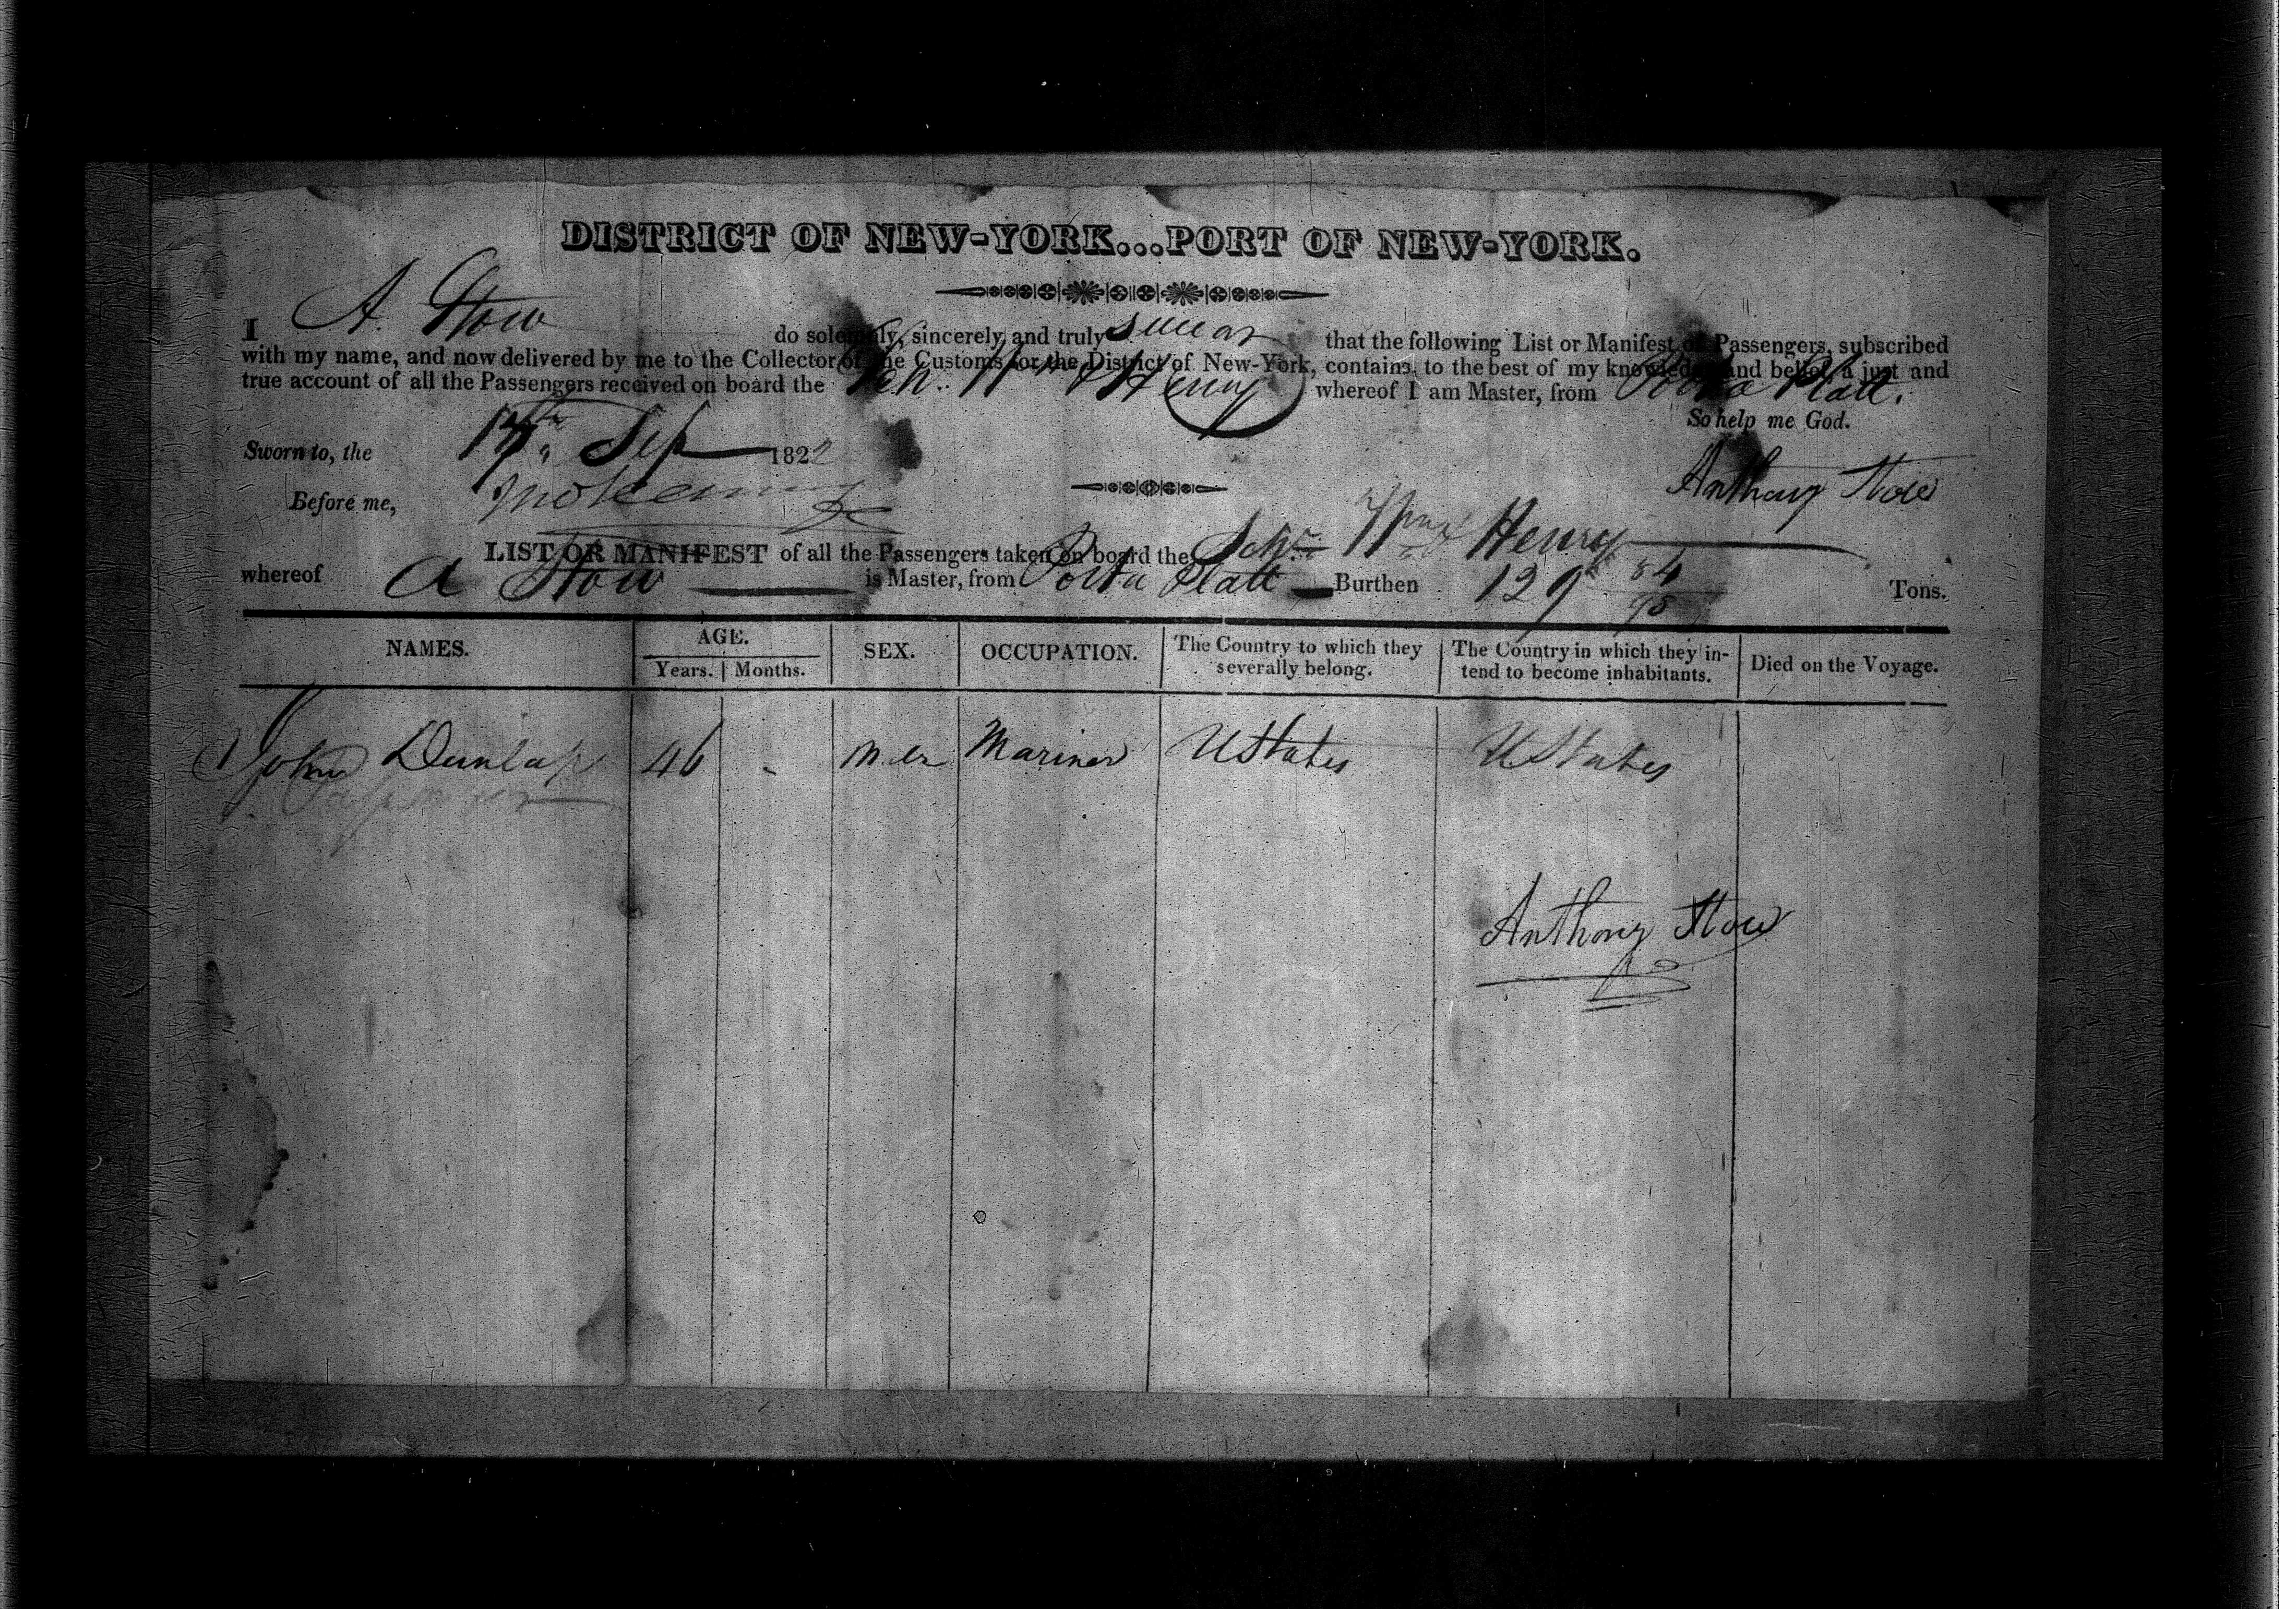 DISTRICT OF NEW-YORK...PORT OF NEW-YORK.
I A. Stow do solemnly, sincerely, and truly swear that the following List or Manifest of Passengers, subscribed
with my name, and now delivered by me to the Collector of the Customs for the District of New-York, contains, to the best of my knowledge and belief, a just and
true account of all the Passengers received on board the Sch. Henry whereof I am Master, from Porta Platt.
So help me God.
Sworn to, the 17th Sep 1822
Anthony Stow
Before me,
LIST OR MANIFEST of all the Passengers taken on board the Schr Henry
whereof A Stow is Master, from Porta Platt Burthen 129 84/95 Tons.
NAMES. AGE. SEX. OCCUPATION. The Country to which they severally belong. The Country in which they intend to become inhabitants. Died on the Voyage.
Years. Months.
John Dunlap 46 - Mariner UStates UStates
Anthony Stow